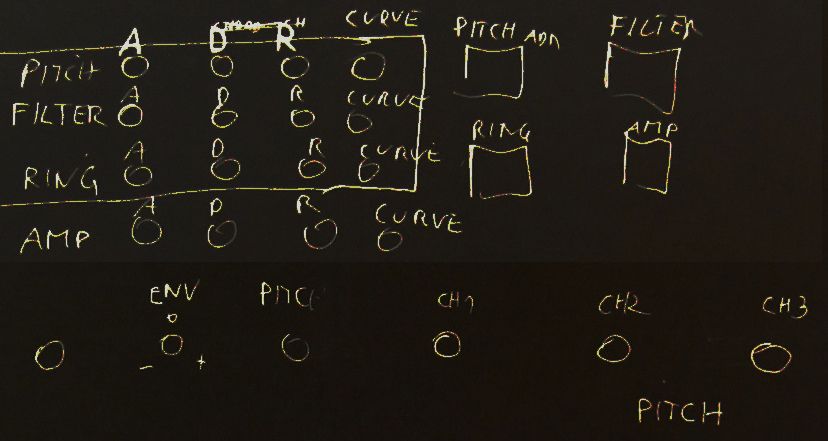 CURVE
A D R PITCH ADR FILTER
PITCH
A D R CURVE
FILTER
RING AMP
A D R CURVE
RING
A D R CURVE
AMP
ENV PITCH CH1 CH2 CH3
0
- +
PITCH